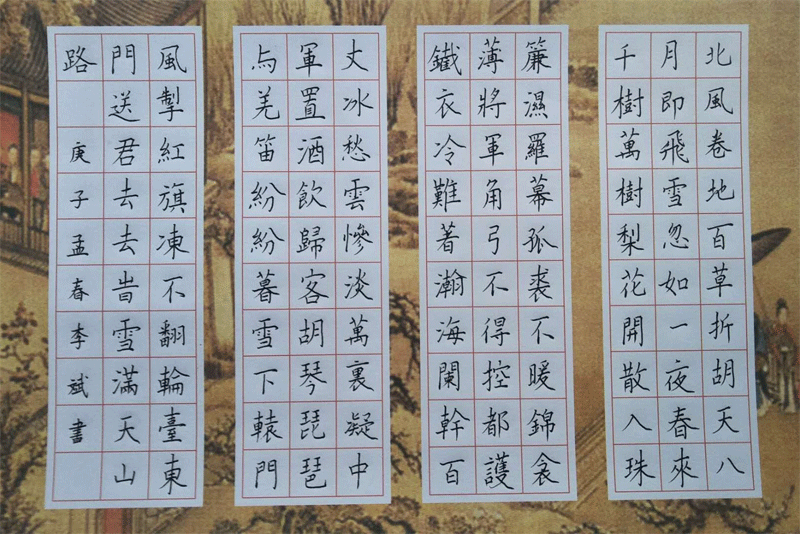 北風卷地百草折胡天八
月即飛雪忽如一夜春來
千樹萬樹梨花開散入珠
簾濕羅幕孤裘不暖錦衾
薄將軍角弓不得控都護
鐵衣冷難著瀚海闌幹百
丈冰愁雲慘淡萬裏凝中
軍置酒飲歸客胡琴琵琶
与羌笛紛紛暮雪下轅門
風掣紅旗凍不翻輪臺東
門送君去去旹雪滿天山
路 庚子孟春李斌書